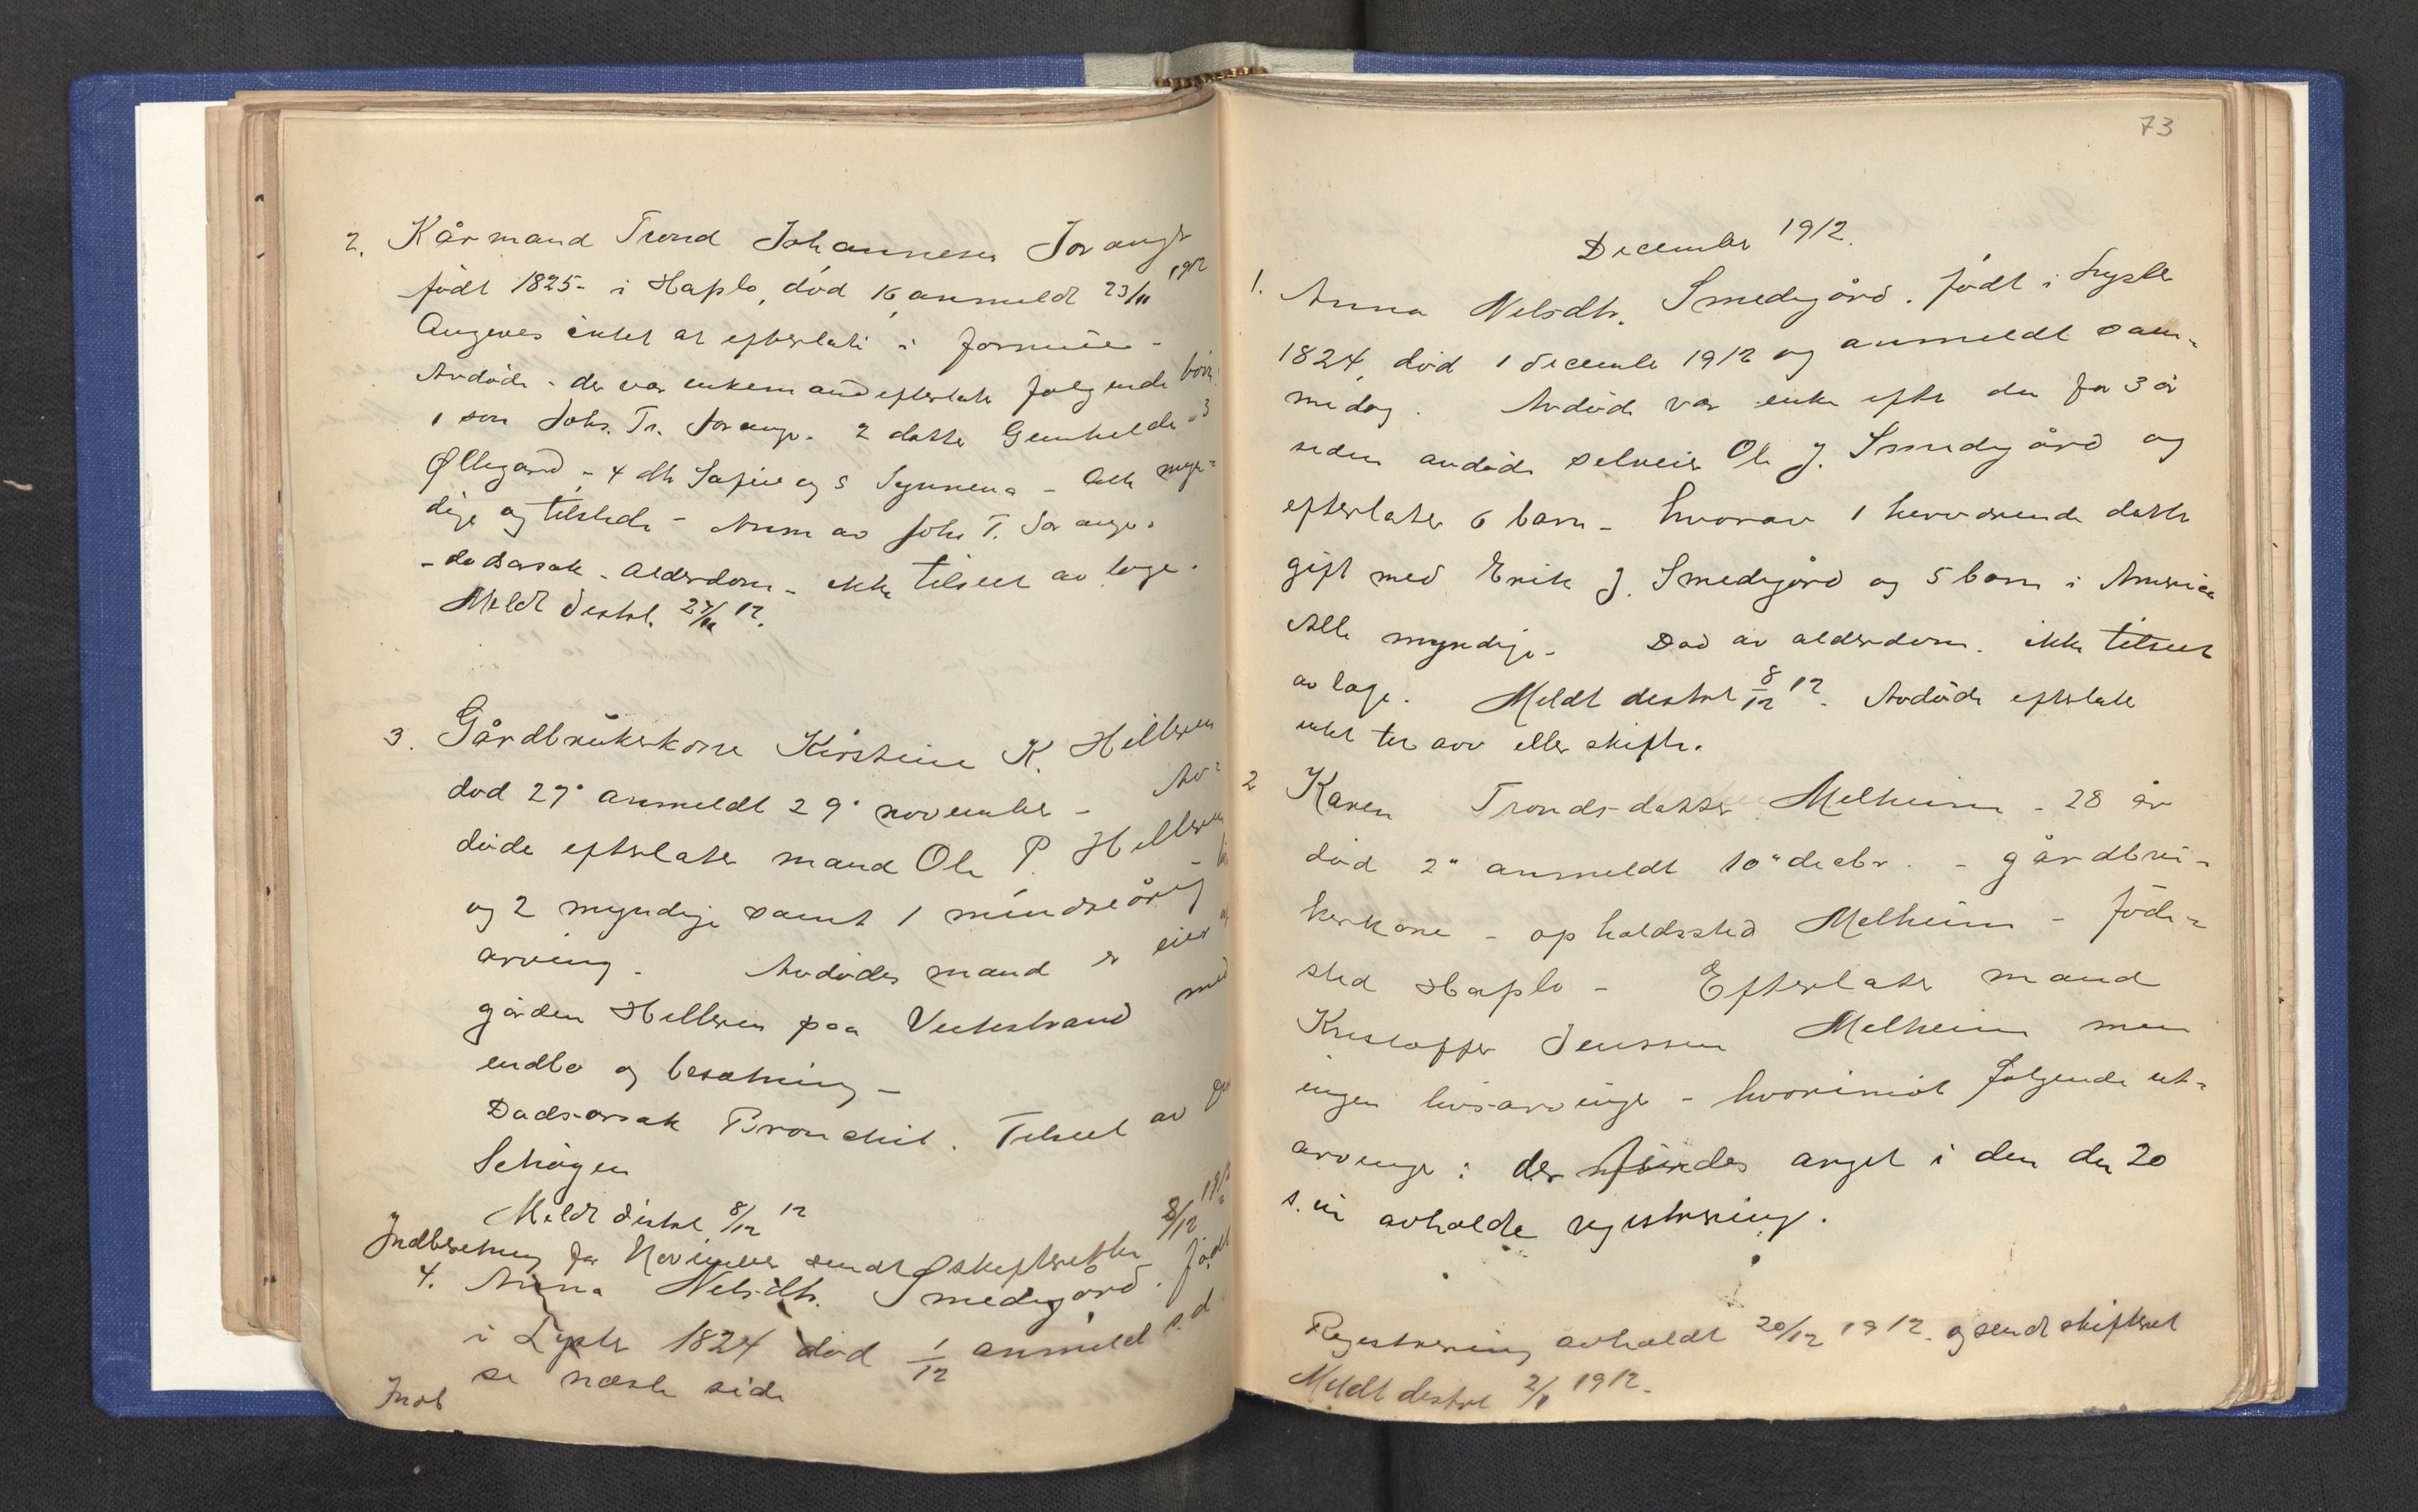 2. Kårmand Trond Johannesen Joranger
født 1825 - i Haflo, død 16 anmeldt 23/11 1912
Angives intet at efterlate i formue -
Avdøde - der var enkemand efterlater følgende børn:
1 søn Johs. Tr. Joranger. 2 datter Gunhilde 3
Øllegard - 4 dtr Sofie og 5 Synneva - Alle myn-
dige og tilstede - Anm av Johs T. Joranger.
- dødsårsak - alderdom - ikke tilseet av læge.
Meldt distrl. 27/11 12.
3. Gårdbrukerkone Kirstine K. Hilleren
død 27' anmeldt 29' november - Av-
døde efterlater mand Ole P. Hilleren
og 2 myndige samt 1 mindreårig
arving. Avdødes mand er eier av
gården Hilleren paa Veitestrand med
indbo og besætning -
Dødsårsak Bronchit. Tilseet av
Schøgen
Meldt distrl 8/12 12
Indberetning for November sendt skifteretten 8/12 1912
4. Anna Nelsdtr. Smedegård. født
i Lyster 1824 død 1/12 anmeldt s. d.
se næste side
Indb
73
December 1912.
1. Anna Nelsdtr. Smedegård. født i Lyster
1824, død 1 december 1912 og anmeldt sam-
me dag. Avdøde var enke efter den for 3 år
siden avdøde selveier Ole J. Smedegård og
efterlater 6 barn - hvorav 1 herværende datter
gift med Erik J. Smedegård og 5 barn i Amerika
Alle myndige. Død av alderdom. ikke tilseet
av læge. Meldt distrl 8/12 12. Avdøde efterlater
intet til arv eller skifte.
2 Karen Trondsdatter Melheim - 28 år
død 2" anmeldt 10" decbr. - gårdbru-
kerkone - opholdssted Melheim -føde-
sted Haflo - Efterlater mand
Kristoffer Jenssen Melheim men
ingen livsarvinge - hvorimot følgende ut-
arvinge: der findes angit i den den 20
s. m avholdte registrering.
Registrering avholdt 20/12 1912. og sendt skifteret
Meldt distrl 2/1 1912.